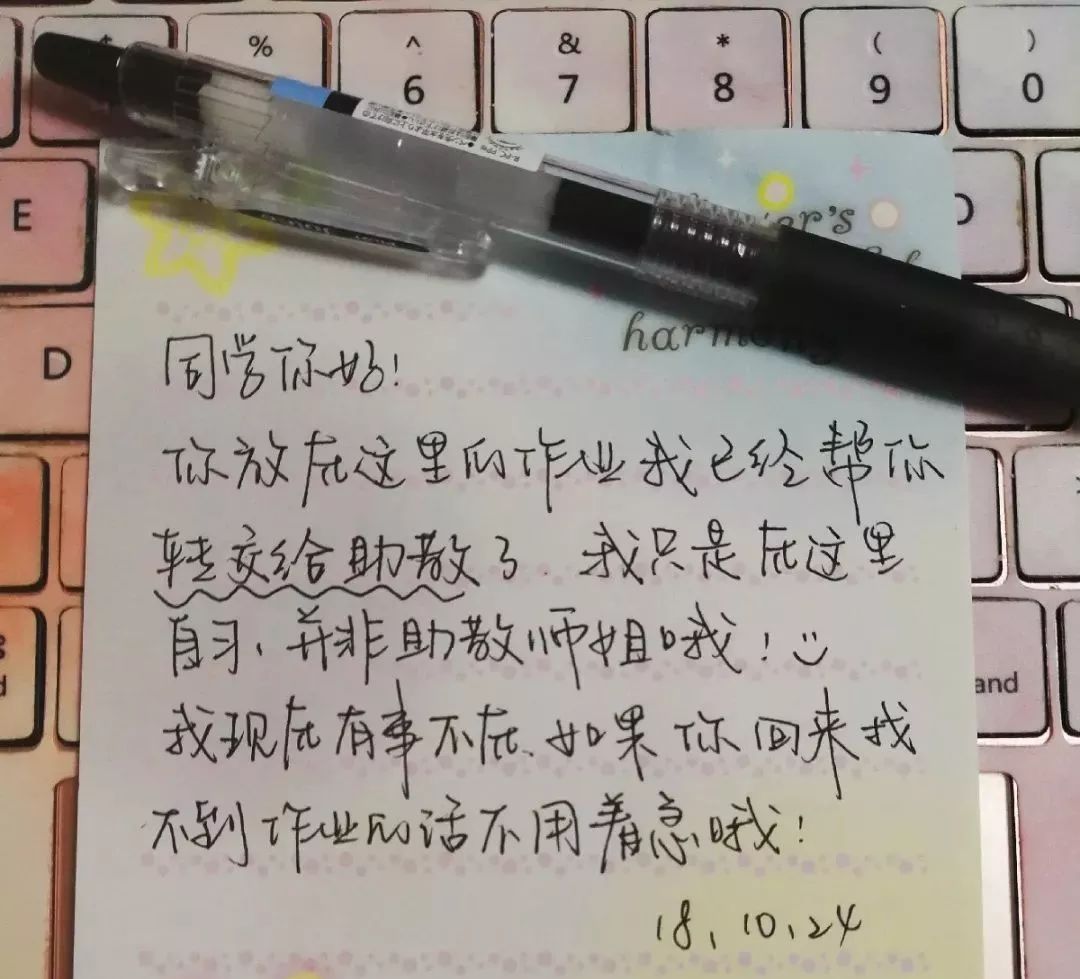 %
^
&
*
(
)
6
7
8
9
0
E
D
R-PC PP46
er's
harmony
同学你好!
你放在这里的作业我已经帮你
转交给助教了.我只是在这里
自习、并非助教师姐哦!
我现在有事不在.如果你回来找
不到作业的话不用着急哦!
and
18、10、24